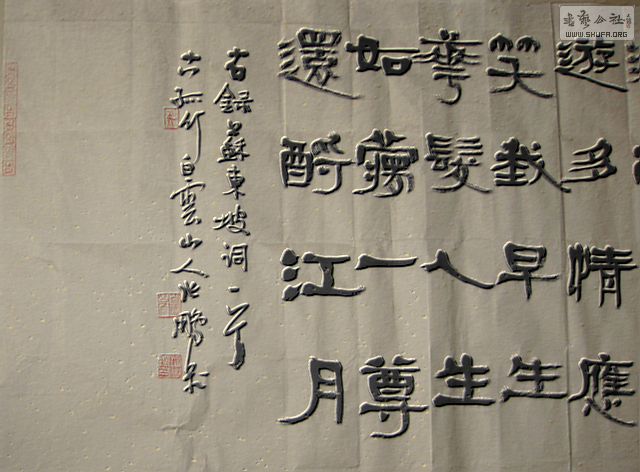 書藝公社
WWW.SHUFA.ORG
遊多情應
笑我早生
華髮人生
如夢一尊
還酹江月
右錄蘇東坡詞一首
古孤竹白雲山人張鵬書